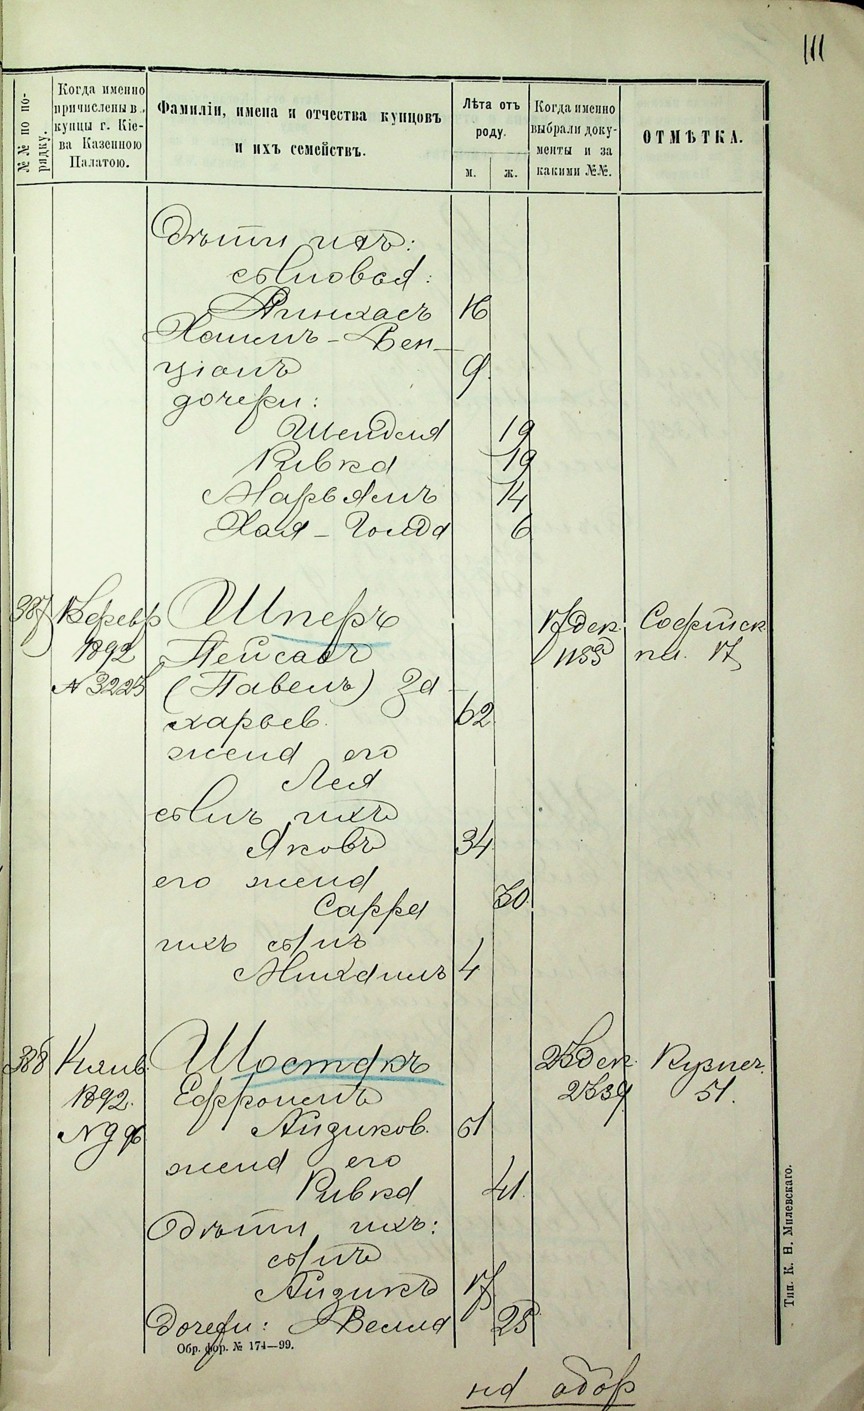 111
№№ по порядку.
Когда именно причислены в купцы г. Кіева Казенною Палатою.
Фамиліи, имена и отчества купцовъ и ихъ семействъ.
Лѣта отъ роду.
м.
ж.
Когда именно выбрали документы и за какими №№.
ОТМѢТКА.
Дѣти ихъ:
сыновья:
Пинхасъ 16
Хаимъ-Бен-
ціонъ 9.
дочери:
Шейндля 19
Ривка 19
Марьямъ 14
Хая-Гольда 6
387 Шперъ 17 дек. Софійск.
1892 Пейсахъ 1155 пл. 17
№ 3225 (Павелъ) За-
харьев. 62
жена его
Лея
сынъ ихъ
Яковъ 34
его жена
Сарра 30
ихъ сынъ
Михаилъ 4
388 Шостакъ 23 дек. Кузнеч.
1892. Ефроимъ 51.
Айзиков. 51
жена его
Ривка 41.
Дѣти ихъ:
сынъ
Айзикъ 17
Дочери: Бейла 25
Обр. фор. № 174—99.
на обор
Тип. К. Н. Милевскаго.